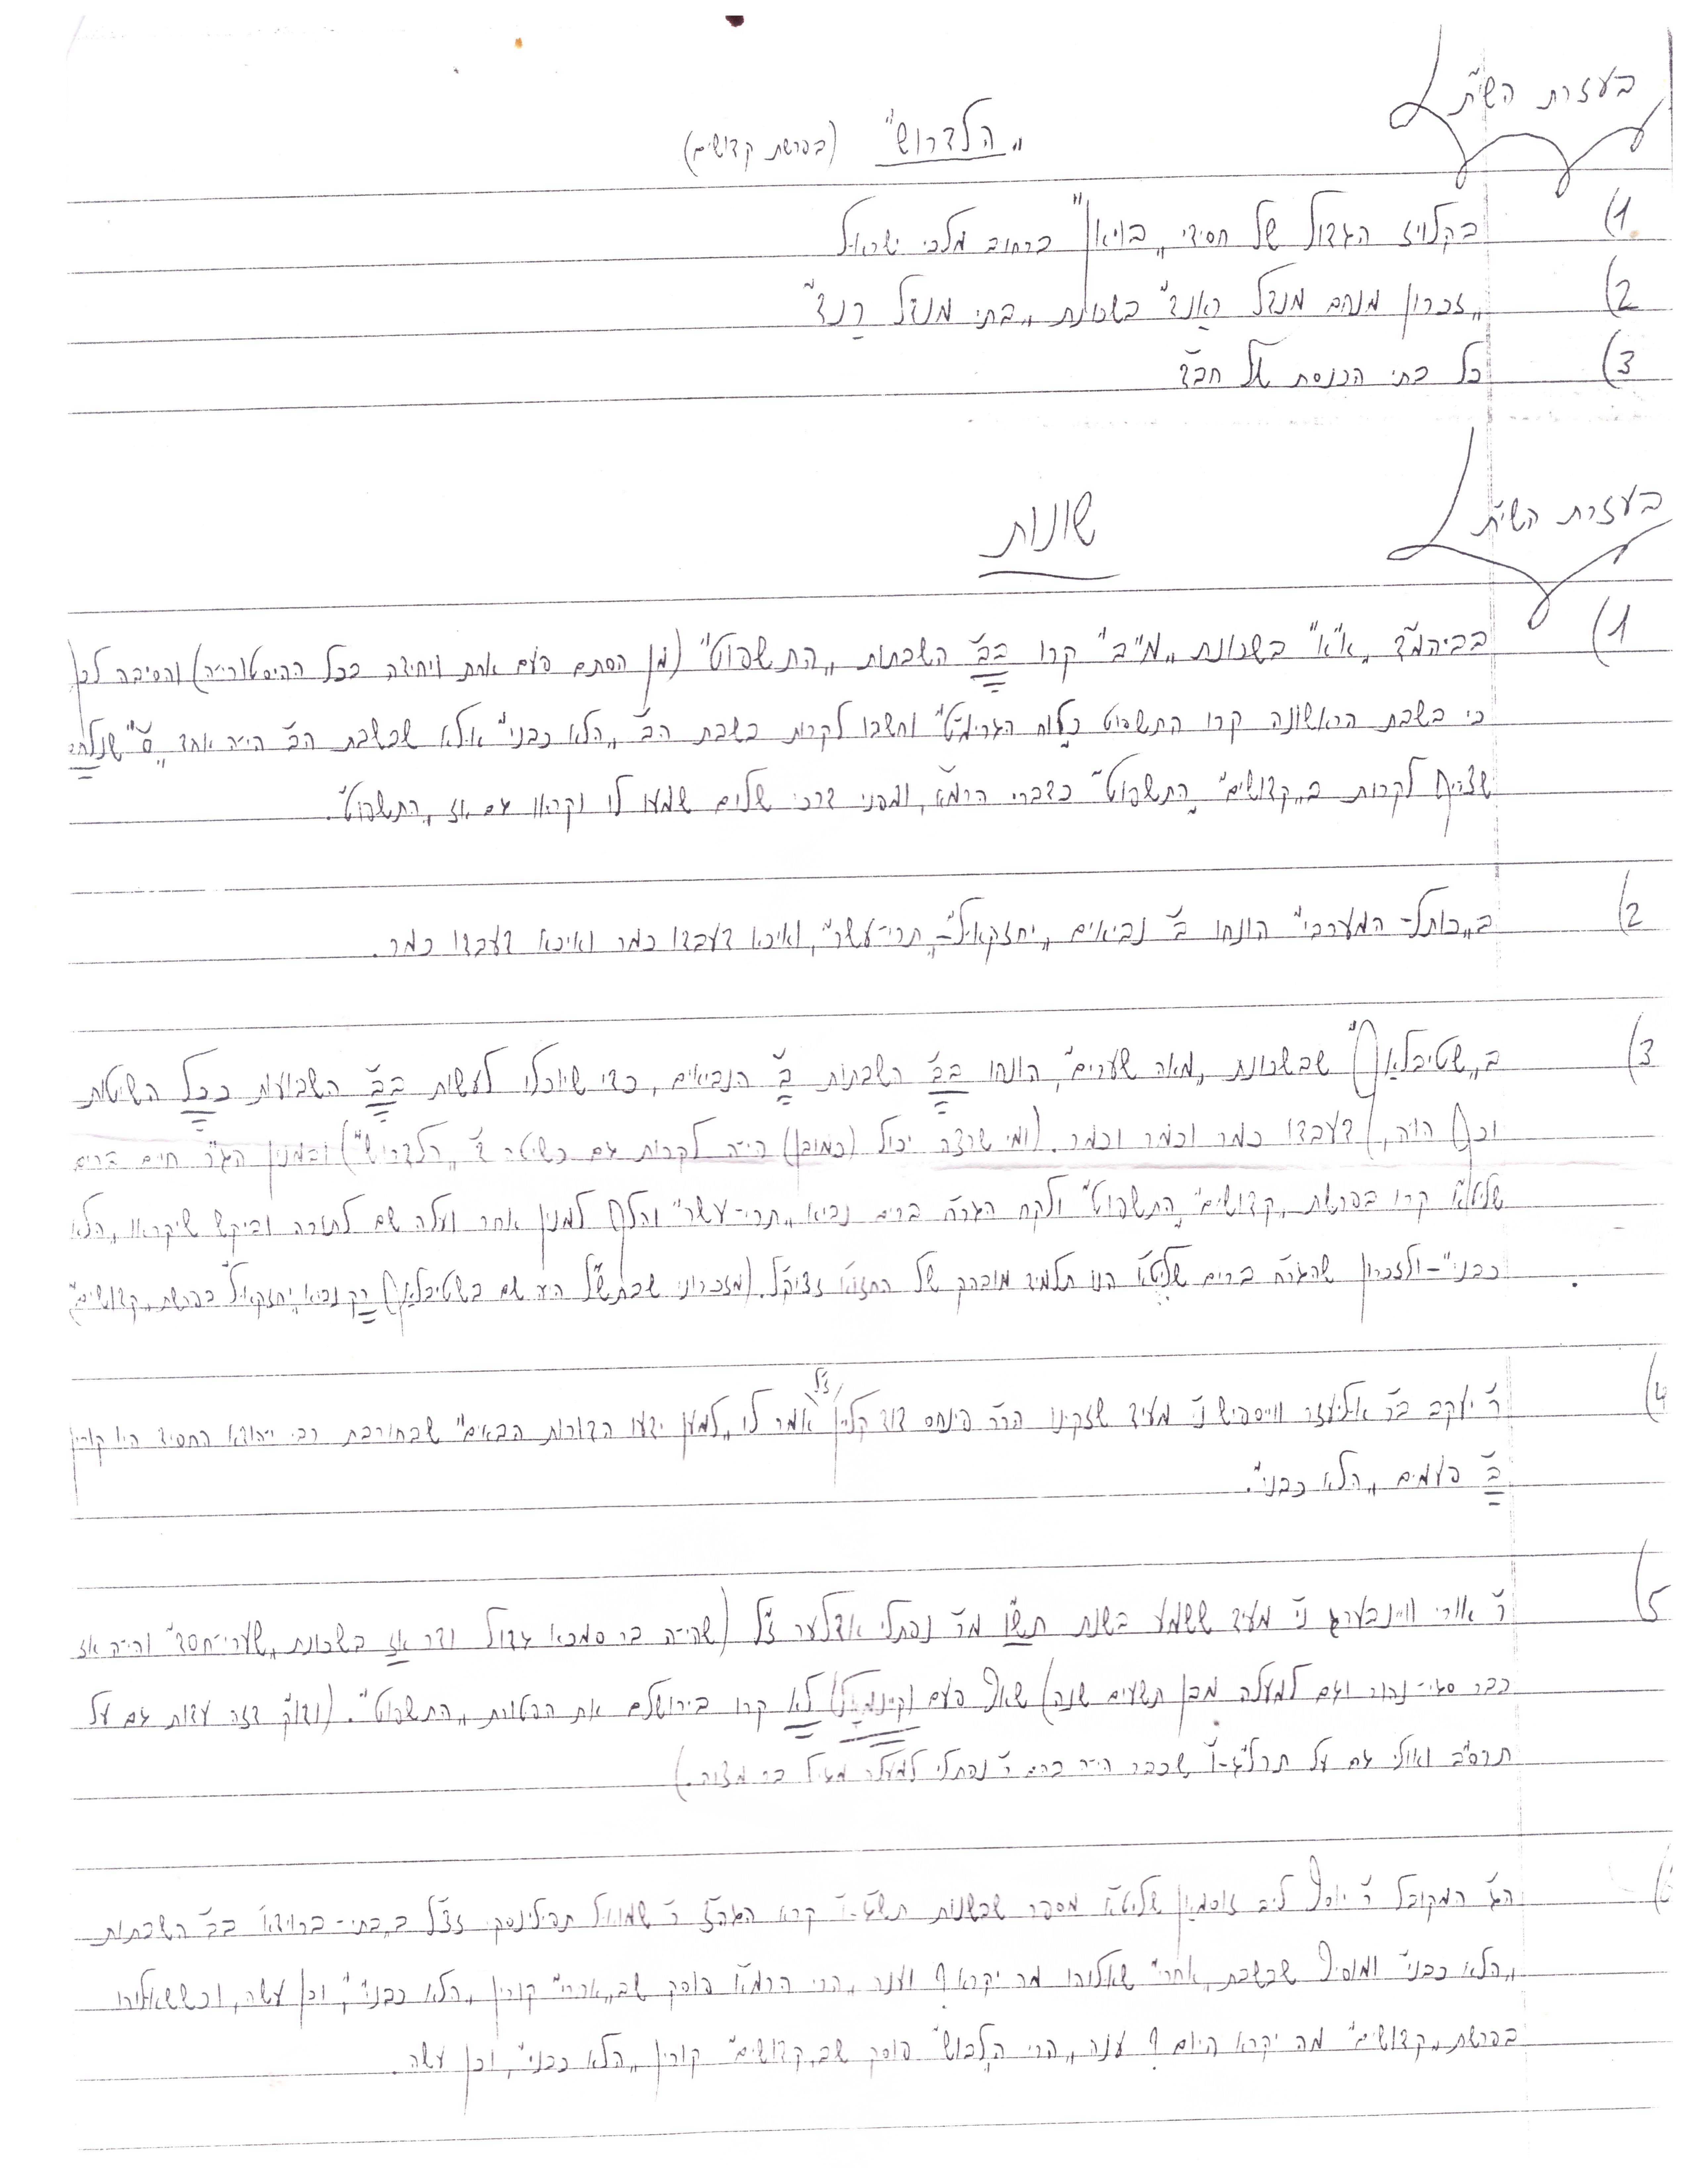 בעזרת השי"ת
„הלדרוש" (בפרשת קדושים)
1) בקלויז הגדול של חסידי „בויאן" ברחוב מלכי ישראל
2) „זכרון מנחם מנדל ראַנד" בשכונת „בתי מנדל רַנד"
3) כל בתי הכנסת של חב"ד
בעזרת השי"ת
שונות
1) בביהמ"ד „א"א" בשכונת „מ"ב" קרו בב' השבתות „התשפוט" (מן הסתם פעם אחת ויחידה בכל ההיסטוריה) והסיבה לכך
כי בשבת הראשונה קרו התשפוט כלוח הגרימ"ט וחשבו לקרות בשבת הב' „הלא כבני" אולא שבשבת הב' הי' אחד
שצריך לקרות ב„קדושים" „התשפוט" כדברי הרמ"א, ומפני דרכי שלום שמעו לו וקראו גם אז „התשפוט".
2) ב„כותל- המערבי" הונחו ב' נביאים „יחזקאל"- „תרי-עשר", ואיכא דעבדו כמר ואיכא דעבדו כמר.
3) ב„שטיבלאַך" שבשכונת „מאה שערים", הונחו בב' השבתות ב' הנביאים, כדי שיוכלו לעשות בב' השבועות ככל השיטות
וכך הוה, דעבדו כמר וכמר וכמר. (ומי שרצה יכול (כמובן) הי' לקרות גם כשיטה ד' „הלדרוש") ובמנין הג"ר חיים ברים
שליט"א קרו בפרשת „קדושים" „התשפוט" ולקח הגר"ח ברים נביא „תרי-עשר" והלך למנין אחר ועלה שם לתורה וביקש שיקראו „הלא
כבני"- ולזכרון שהגר"ח ברים שליט"א הנו תלמיד מובהק של החזו"א זצוק"ל. (מזכרוני שבתש"ל היה שם בשטיבלאַך רק נביא „יחזקאל" בפרשת „קדושים")
4) ר' יעקב ב"ר אליעזר ווייספיש נ"י מעיד שזקינו הר"ר פינחס דוד קליין ז"ל אמר לו „למען ידעו הדורות הבאים" שבחורבת רבי יהודא החסיד היו קורין
ב' פעמים „הלא כבני".
5) ר' אורי וויינבערג נ"י מעיד ששמע בשנת תש"ו מר' נפתלי אדלער ז"ל (שהי'ה בר סמכא גדול ודר אז בשכונת „שערי-חסד" והי'ה אז
כבר סגי-נהור וגם למעלה מבן תשעים שנה) שאף פעם לא קרו בירושלים את הפטורת „התשפוט". (ודוק דזה עדות גם על
תרס"ב ואולי גם על תרל"ג-ו' שכבר הי'ה בהם ר' נפתלי למעלה מגיל בר מצוה.)
הג' המקובל ר' יוסף ליב זוסמאַן שליט"א מספר שבשנות קרא הגה"צ ר' שמואל זצ"ל ב„בתי-ברוידא" בב' השבתות
„הלא כבני" ומוסיף שבשבת „אחרי" שאלוהו מה יקרא? וענה „הרי הרמ"א פוסק שב„אחרי" קורין „הלא כבני", וכן עשה, וכששאלוהו
בפרשת „קדושים" מה יקרא היום? ענה „הרי הלבוש" פוסק שב„קדושים" קורין „הלא כבני", וכן עשה.